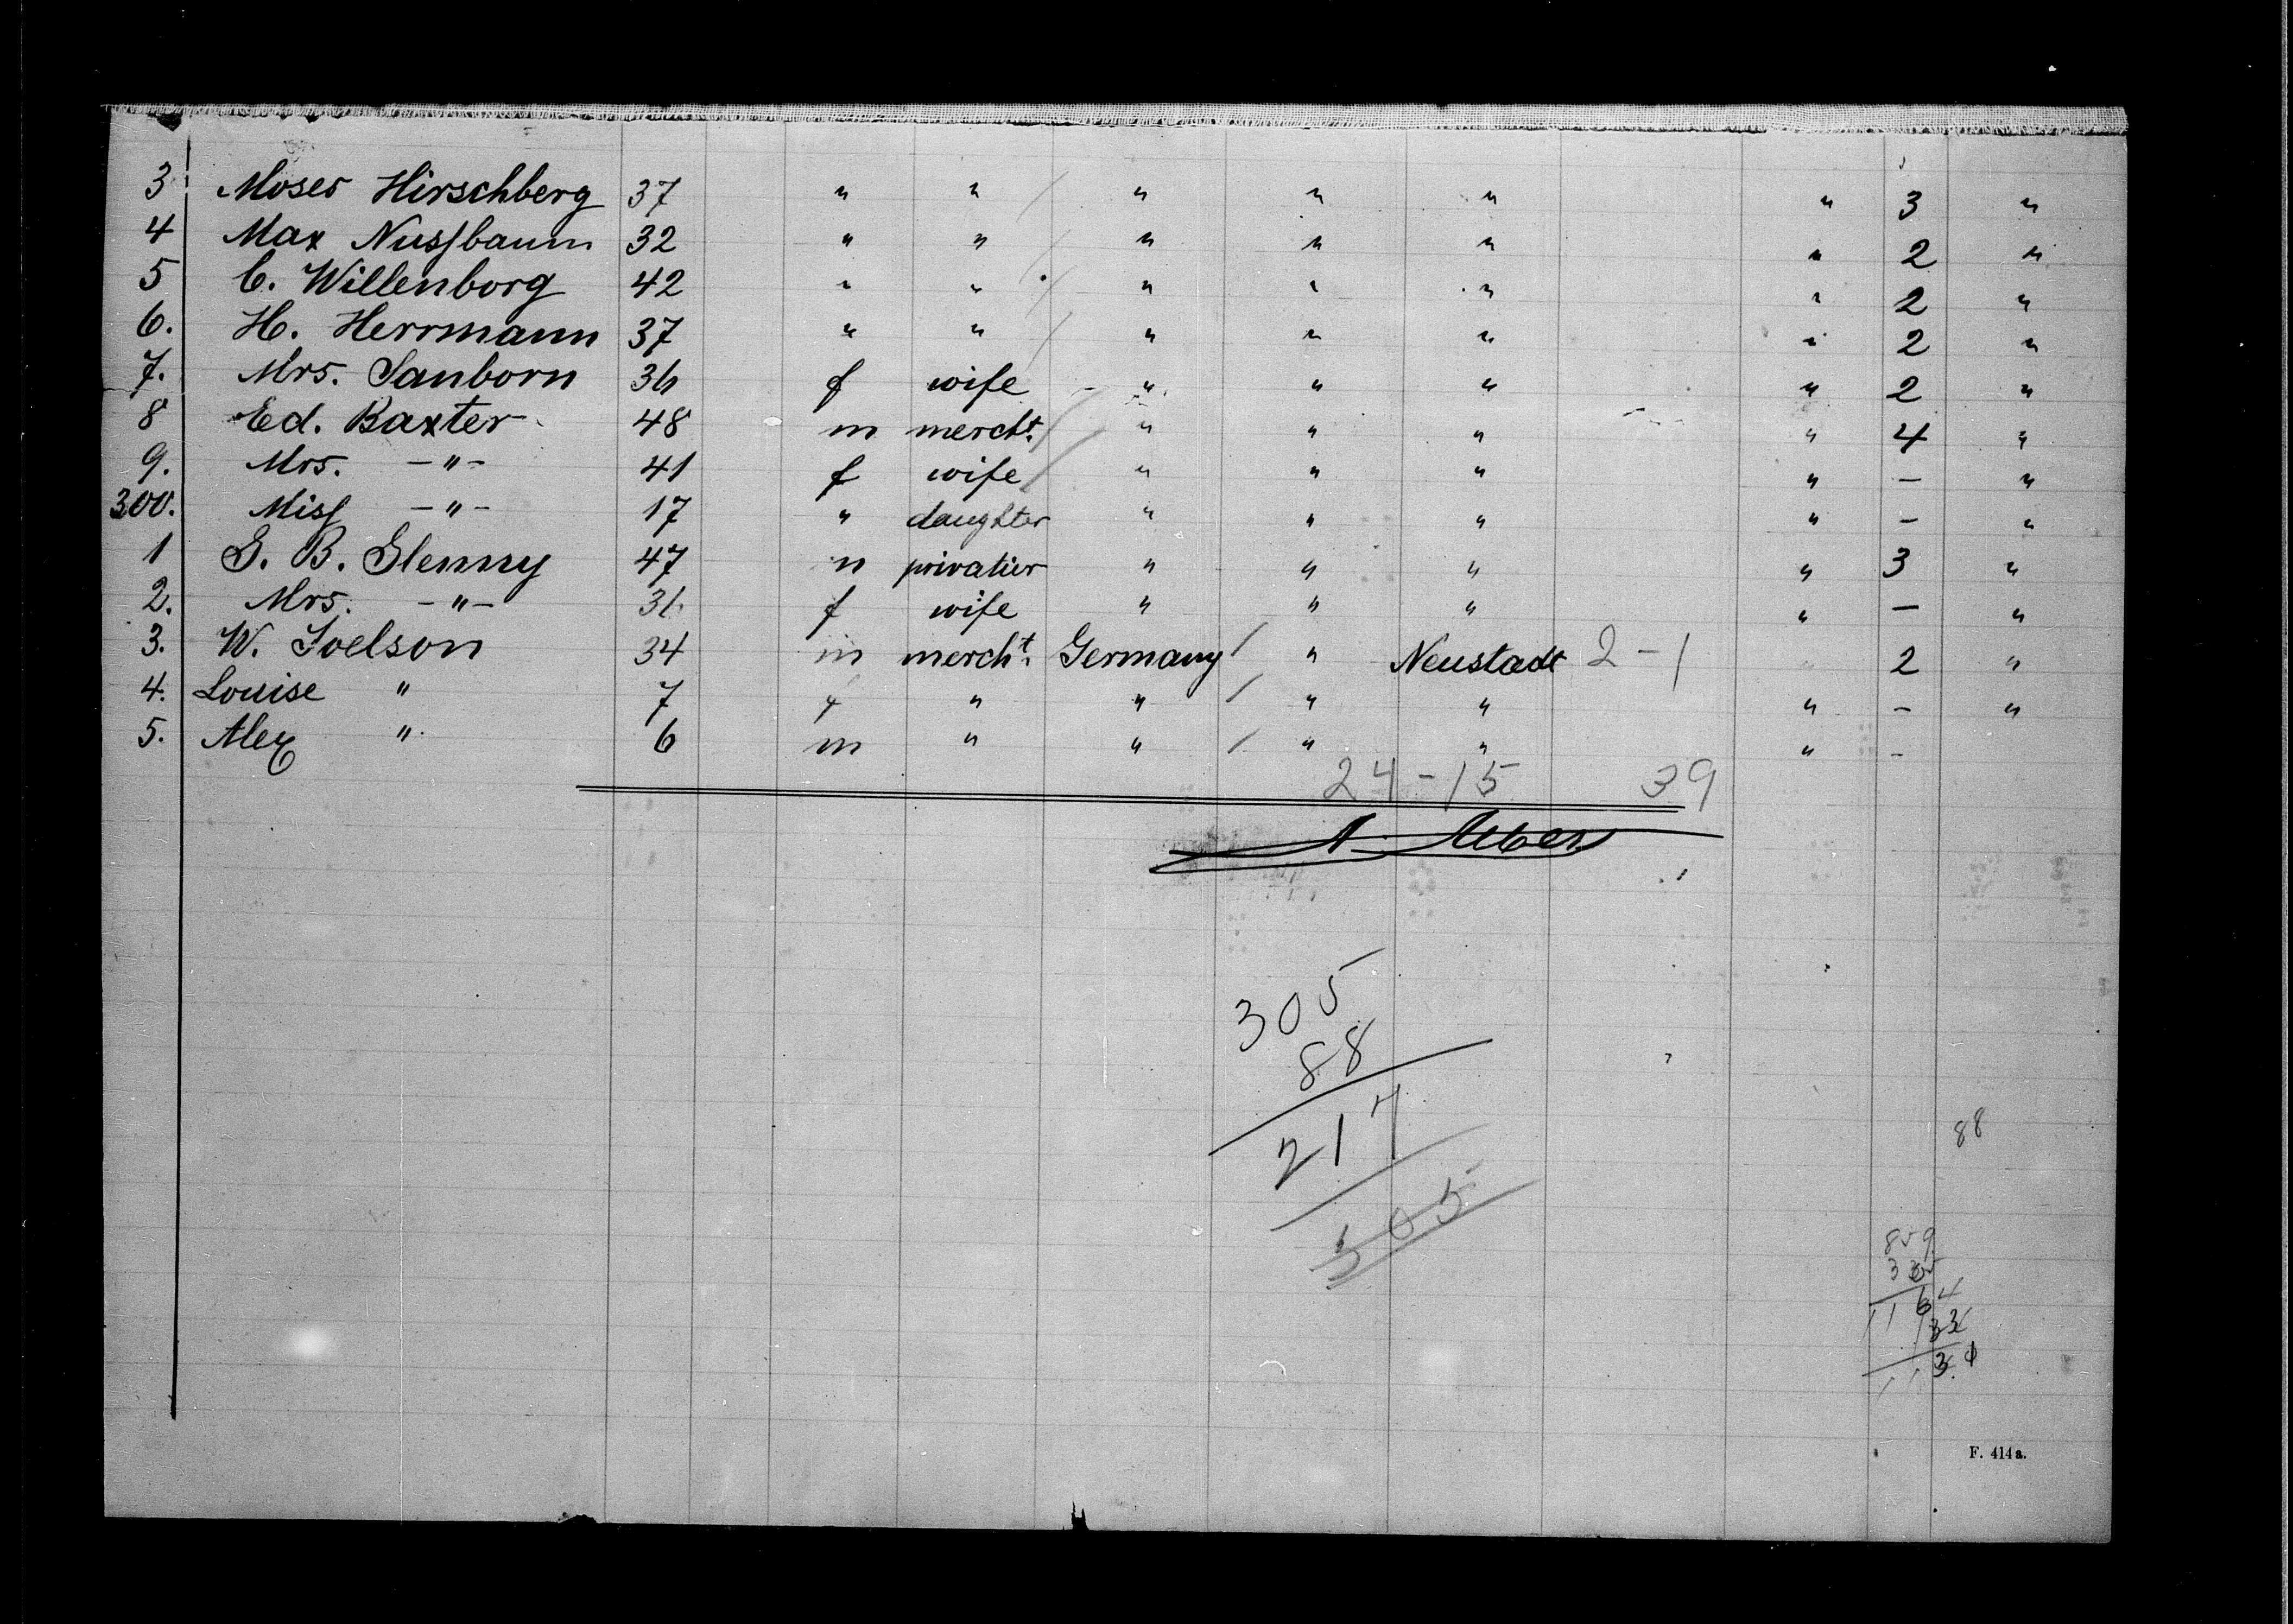 3 Moses Hirschberg 37 " " / " " " " 3 "
4 Max Nussbaum 32 " " / " " " " 2 "
5 C. Willenborg 42 " " / " " " " 2 "
6. H. Herrmann 37 " " / " " " " 2 "
7. Mrs. Sanborn 36 f wife - " " " " 2 "
8 Ed. Baxter 48 m mercht. / " " " " 4 "
9. Mrs. -"- 41 f wife / " " " " - "
300. Miss -"- 17 " daughter " " " " - "
1 G. B. Glenny 47 m privatier " " " " 3 "
2. Mrs. -"- 31. f wife " " " " - "
3. W. Joelson 34 m mercht. Germany / " Neustadt 2-1 " 2 "
4. Louise " 7 f " " / " " " - "
5. Alex " 6 m " " / " " " -
24-15 39
305
88
217
305
88
859
305
1164
33
F. 414a.